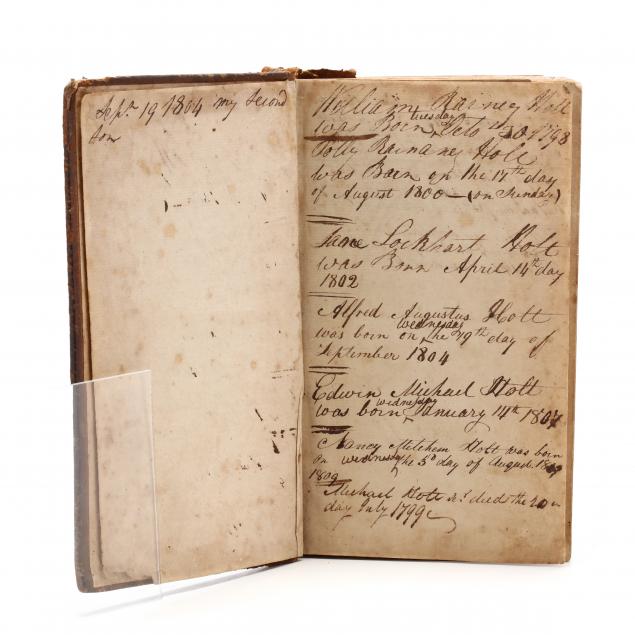 Sepr. 19 1804 my Second
Son
William Rainey Holt
was Born Tuesday Octo 30th 1798
Polly Rainane Holt
was Born on the 17th day
of August 1800 — (on Sunday)
Jane Lockhart Holt
was Born April 14th day
1802
Alfred Augustus Holt
was born on wednesday the 19th day of
September 1804
Edwin Michael Holt
was born wednesday January 14th 1807
Nancy Mitchem Holt was born
on wednesday the 5th day of August
1809
Michael Holt died the 20
day July 1799